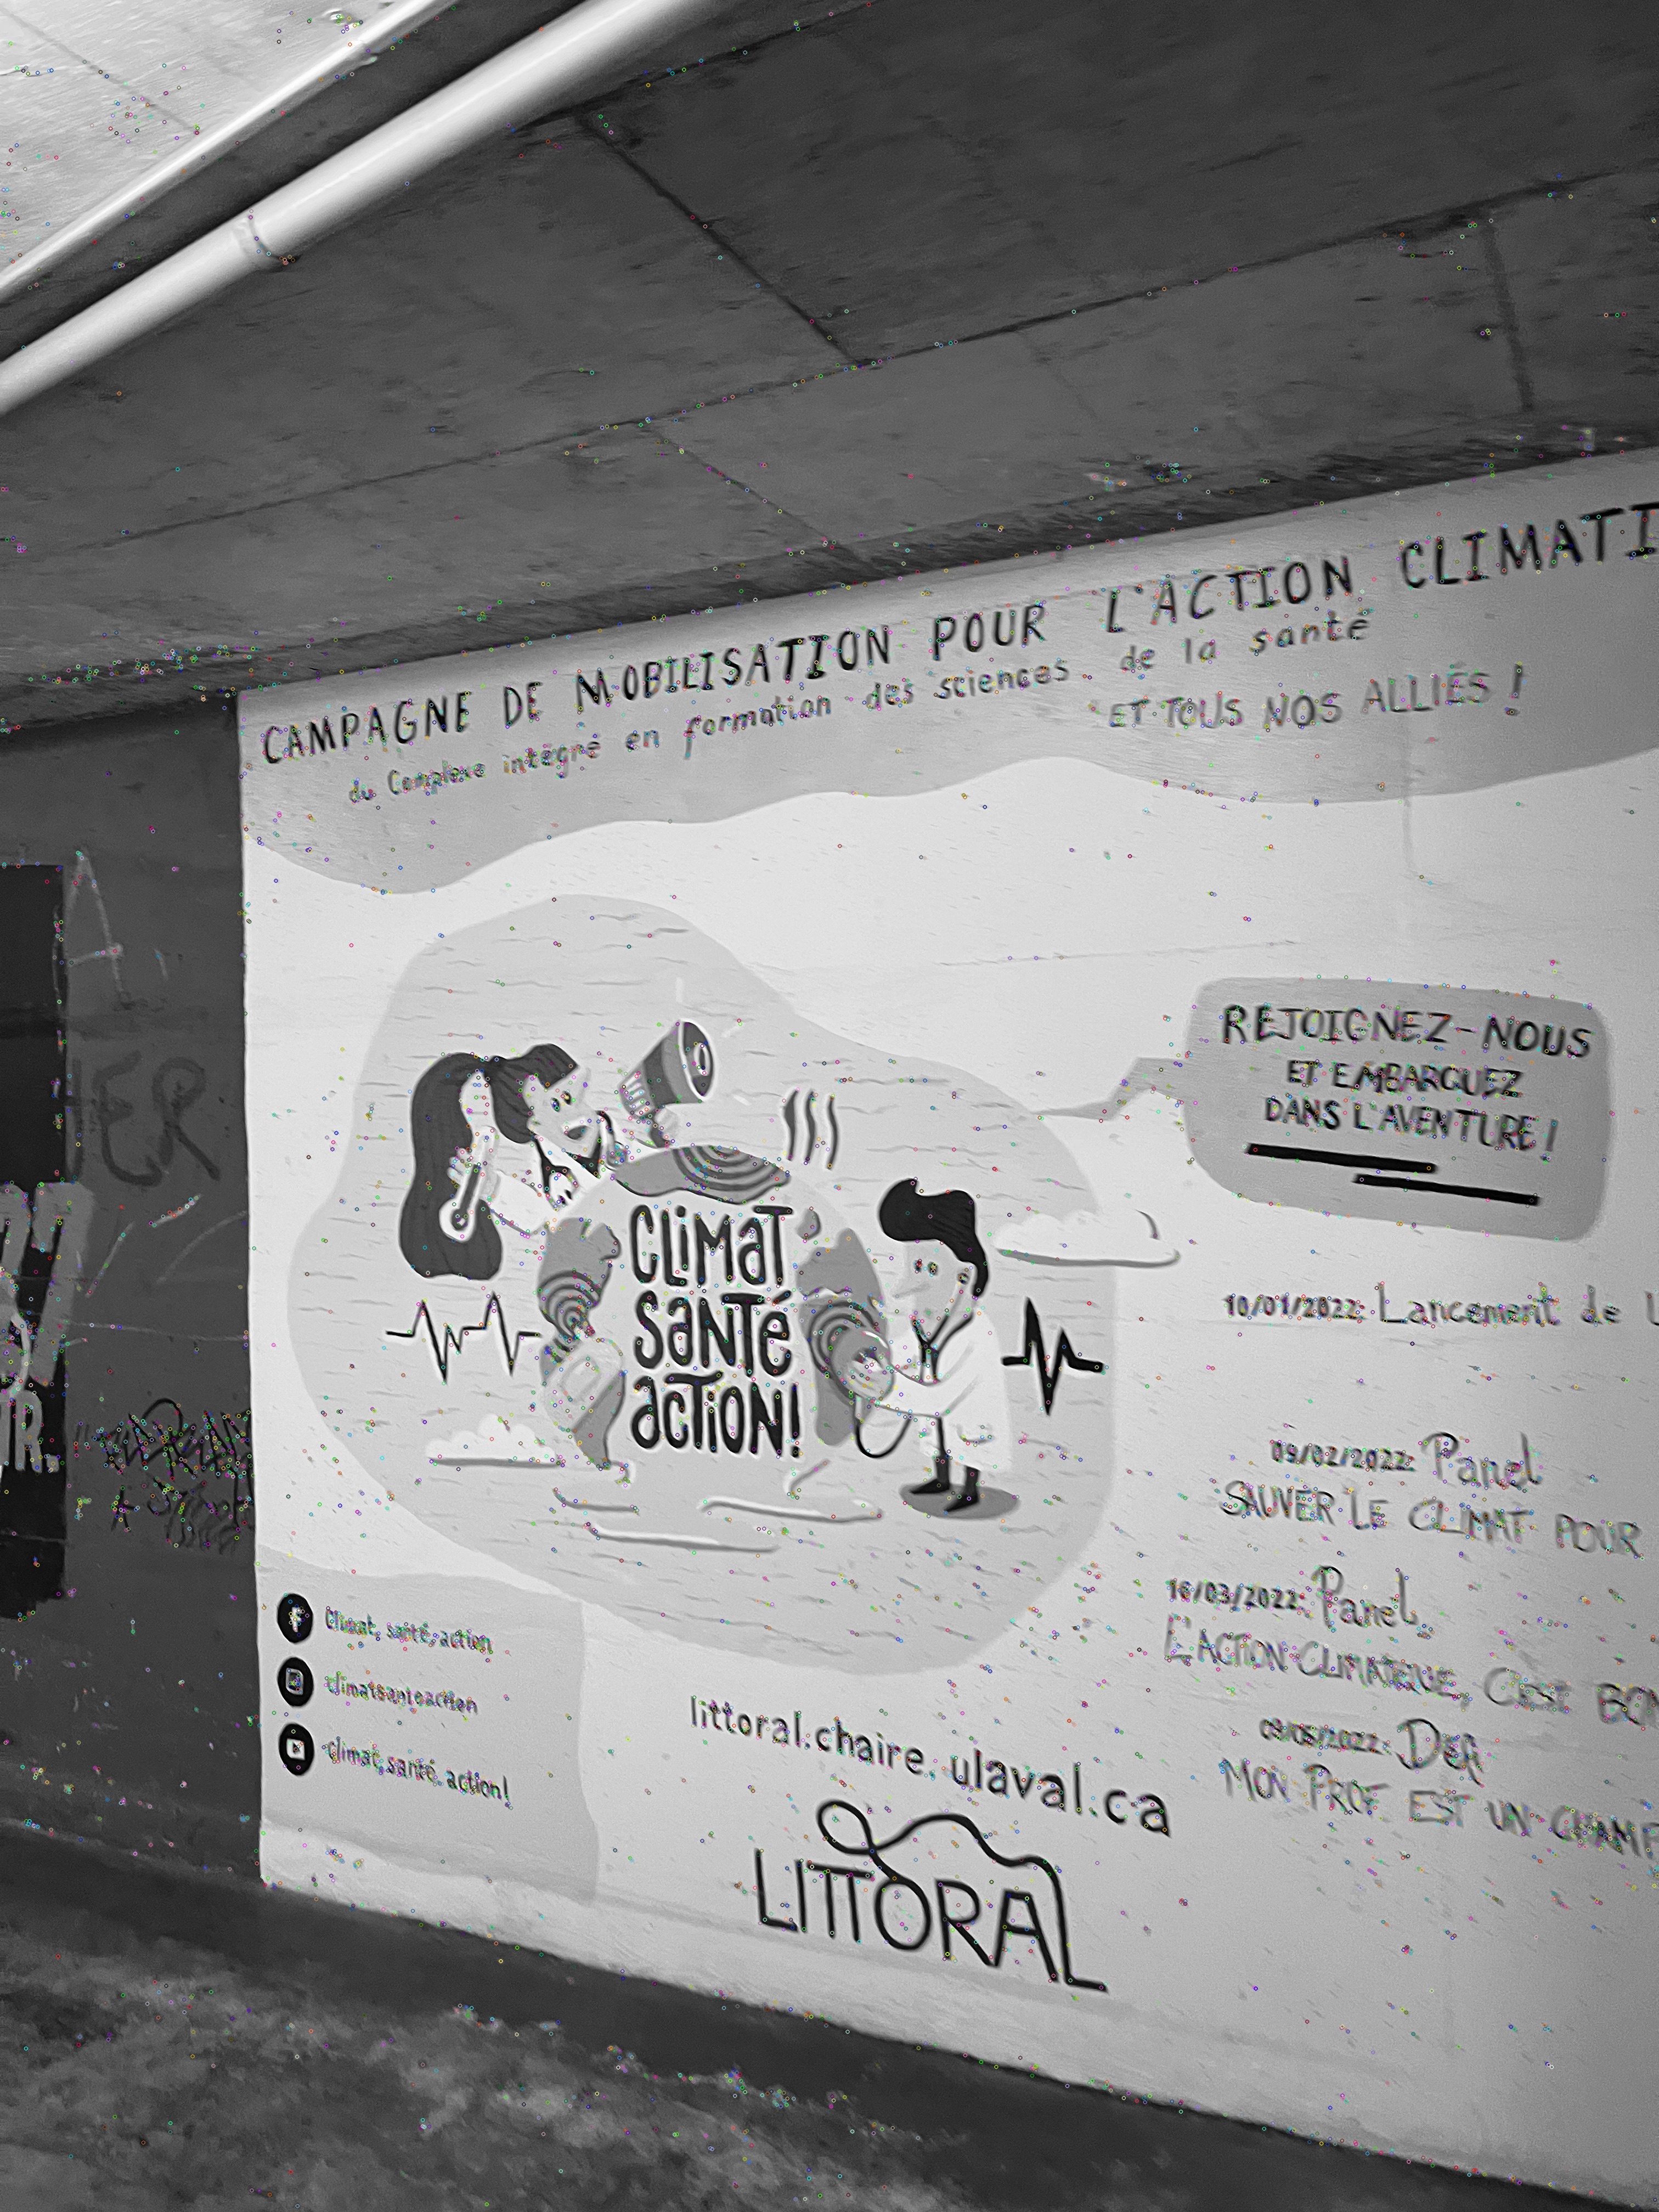 CAMPAGNE DE MOBILISATION POUR L'ACTION CLIMATI
du Complexe intégré en formation des sciences de la santé
ET TOUS NOS ALLIÉS !
A
ER
REJOIGNEZ-NOUS
ET EMBARQUEZ
DANS L'AVENTURE !
CLIMAT
SANTÉ
ACTION!
10/01/2022: Lancement de l
09/02/2022: Panel
SAUVER LE CLIMAT POUR
16/03/2022: Panel
L'ACTION CLIMATIQUE, C'EST BON
Défi
MON PROF EST UN CHAMP
Climat, santé, action
climatsanteaction
Climat, santé, action!
littoral.chaire.ulaval.ca
LITTORAL